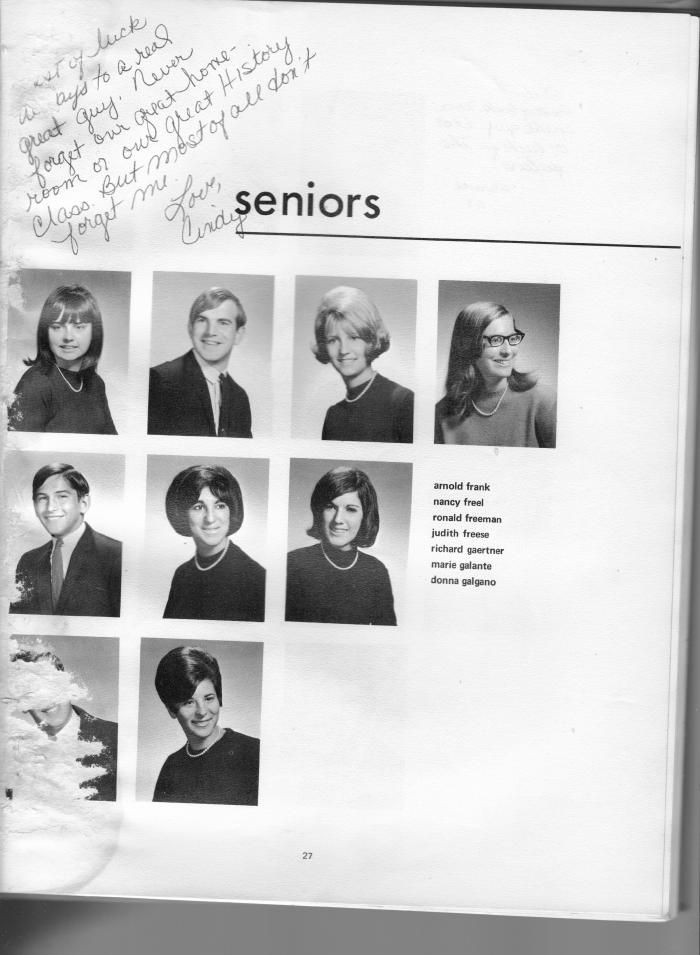 of luck
to a real
great guy. Never
forget our great home-
room or our great History
Class. But most of all don't
forget me.
Love,
Cindy
seniors
arnold frank
nancy freel
ronald freeman
judith freese
richard gaertner
marie galante
donna galgano
27